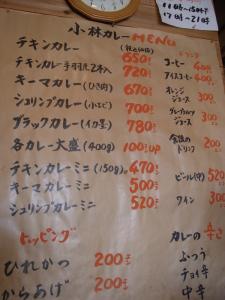 11:00〜15:00
17:00〜21:00
小林カレー MENU
(税込価格)
チキンカレー 650円
チキンカレー 手羽元2本入 720円
キーマカレー (ひき肉) 670円
シュリンプカレー (小エビ) 700円
ブラックカレー (イカ墨) 780円
各カレー大盛 (400g) 100円UP
チキンカレーミニ (150g) 470円
キーマカレーミニ 500円
シュリンプカレーミニ 520円
トッピング
ひれかつ 200円
からあげ 200円
ドリンク
コーヒー 400円
アイスコーヒー 400円
オレンジ
ジュース 300円
グレープフルーツ
ジュース 300円
食後の
ドリンク 200円
ビール(中) 520円
ワイン 300円
カレーの辛さ
ふつう
チョイ辛
中辛